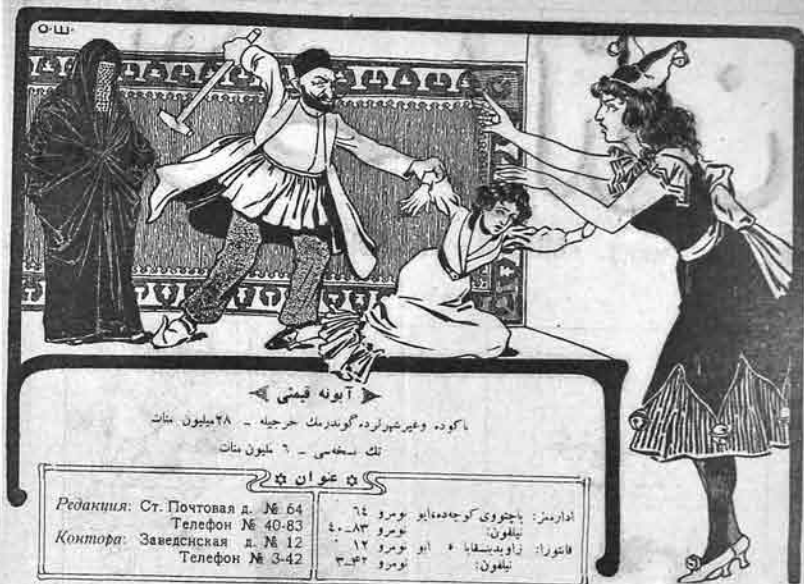 О.Ш.
آبونه قیمتی
باکوده وغیر شهرلرده گوندرمك خرجیله ـ ۲۸ میلیون منات
تك نسخه‌سی ـ ٦ ملیون منات
عنوان
Редакция: Ст. Почтовая д. № 64
Телефон № 40-83
Контора: Заведснская д. № 12
Телефон № 3-42
اداره‌مز: پاچتووی کوچه‌ده ایو نومرو ٦٤
تیلفون: نومرو ۸۳ـ٤۰
قانتورا: زاویدینسقایا ایو نومرو ۱۲
تیلفون: نومرو ٤۲ـ۳